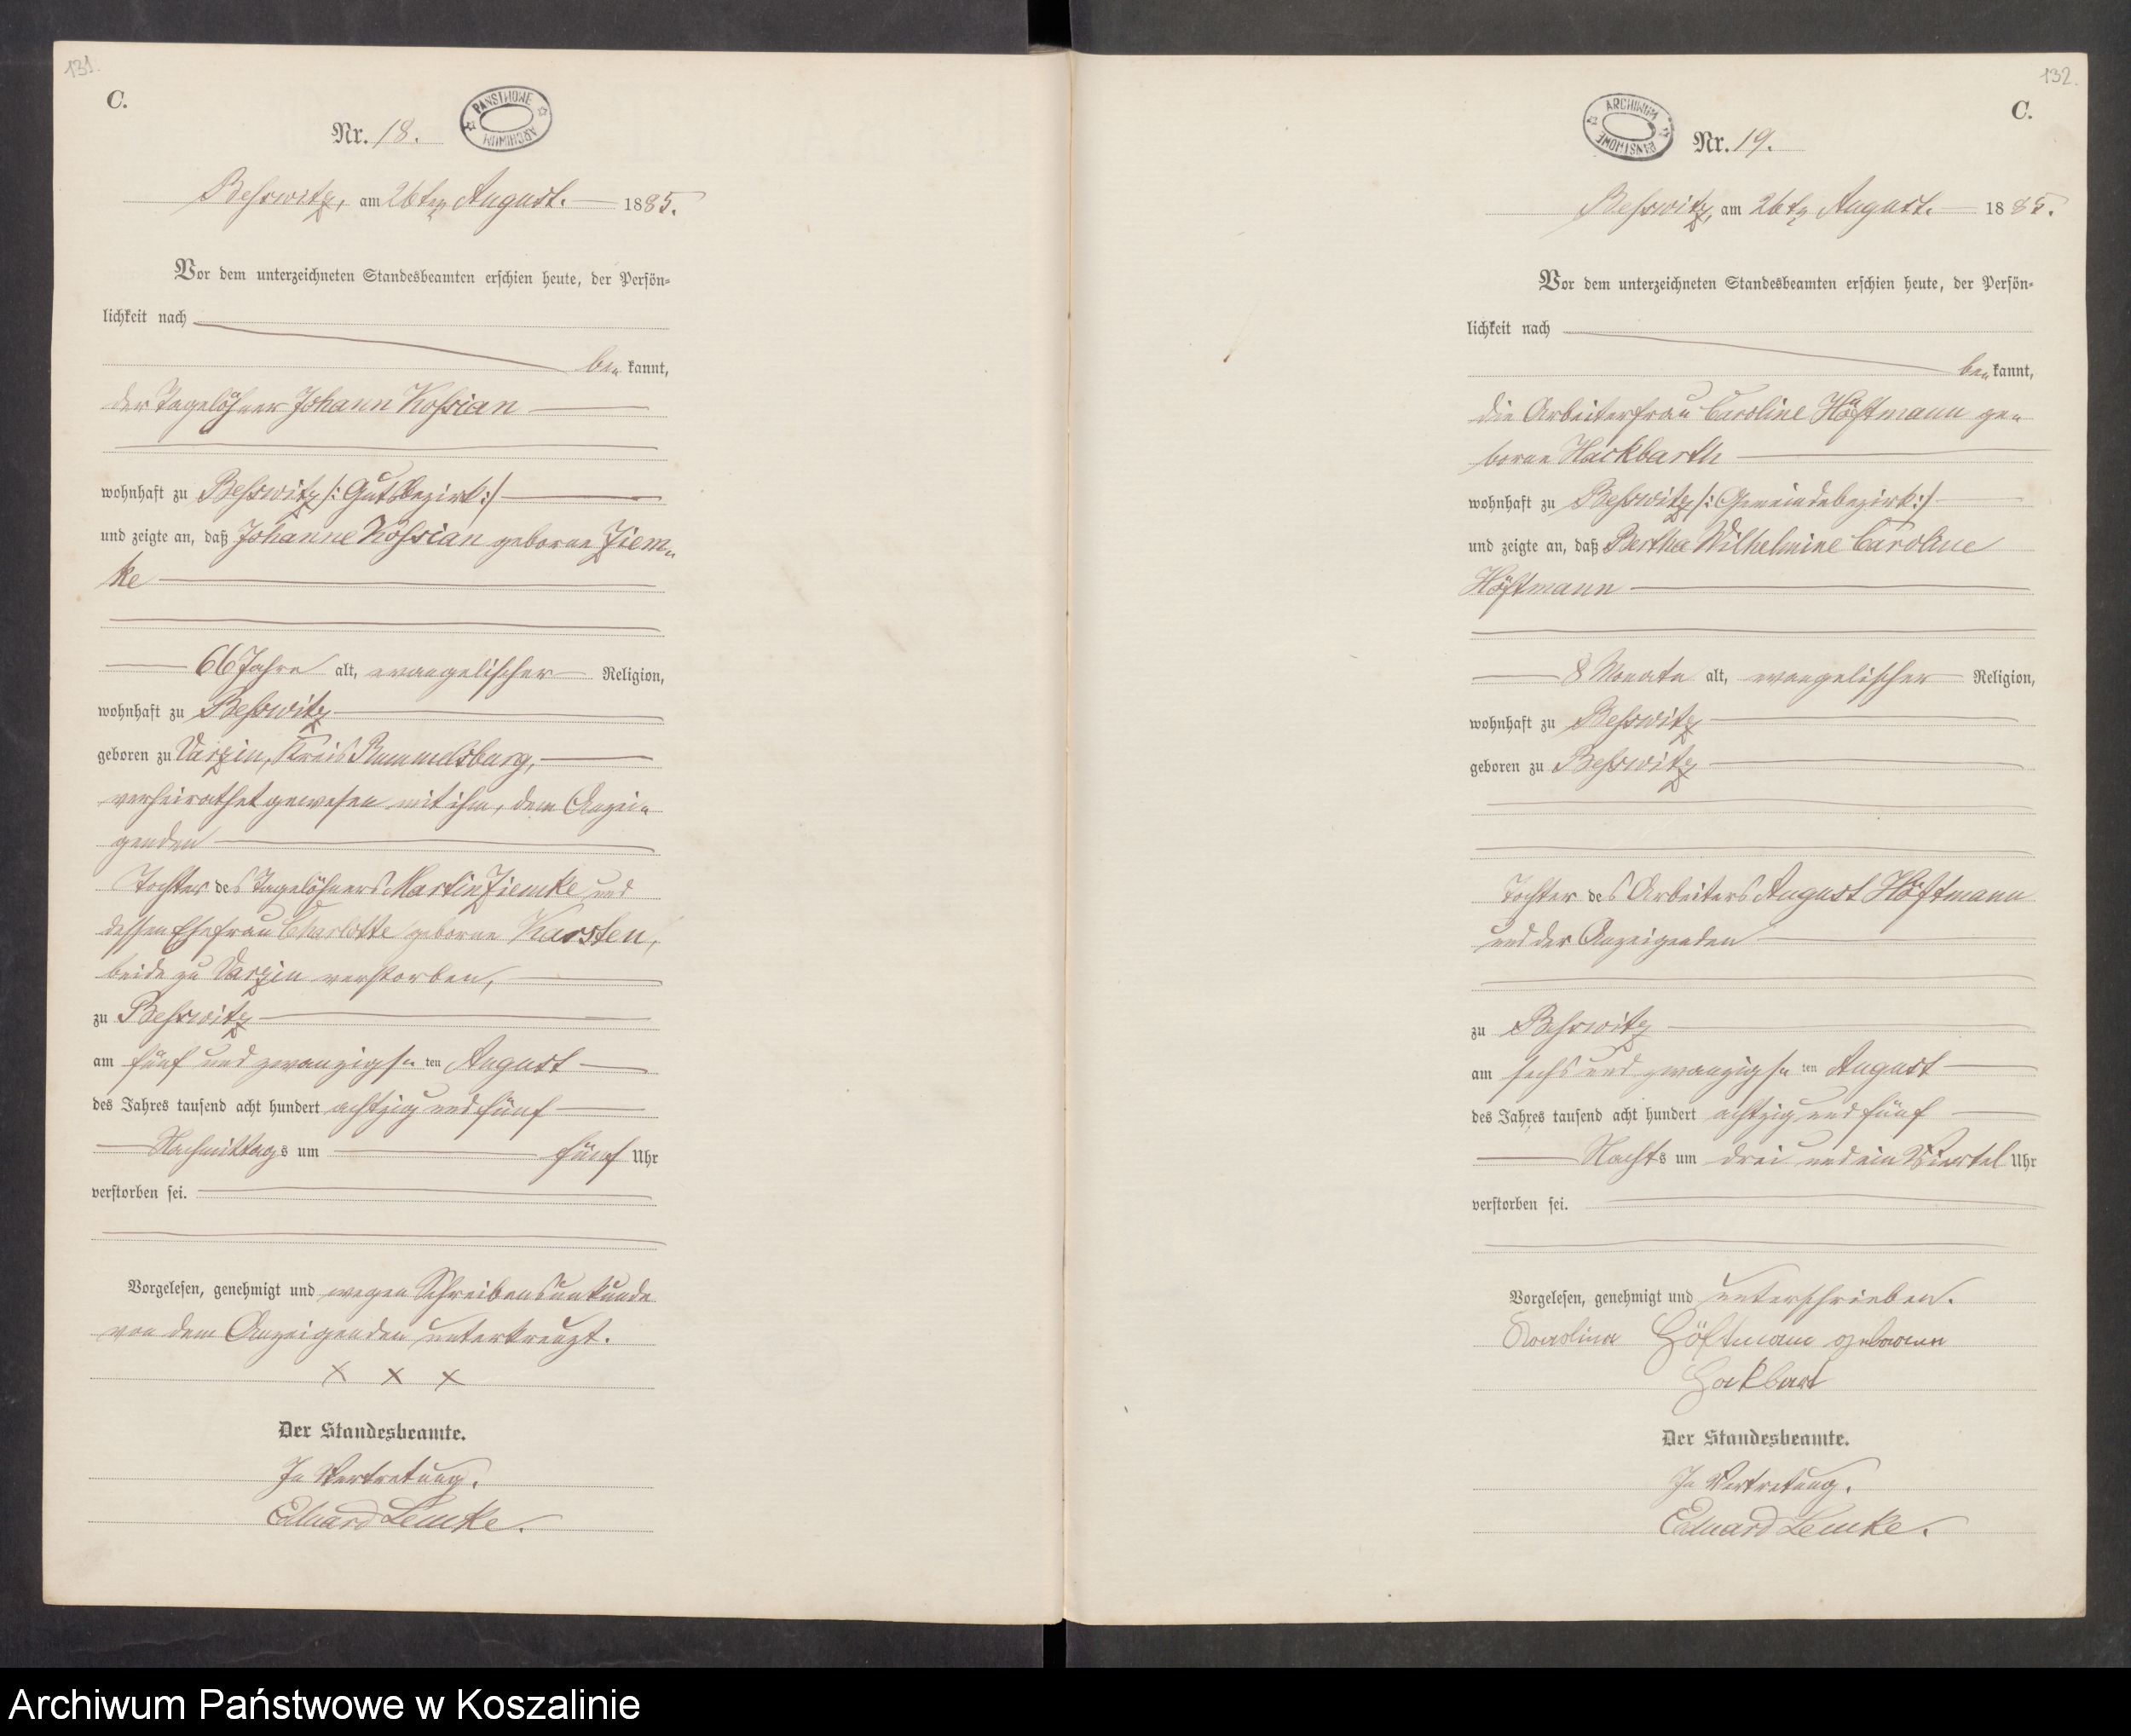 131.
C.
PAŃSTWOWE ARCHIWUM
Nr. 18.
Beßwitz, am 26ten August. 1885.
Vor dem unterzeichneten Standesbeamten erschien heute, der Persön-
lichkeit nach
be- kannt,
der Tagelöhner Johann Koßian
wohnhaft zu Beßwitz /: Gutsbezirk :/
und zeigte an, daß Johanne Koßian geborne Ziem-
ke
66 Jahre alt, evangelischer Religion,
wohnhaft zu Beßwitz
geboren zu Varzin, Kreis Rummelsburg,
verheirathet gewesen mit ihm, dem Anzei-
genden
Tochter des Tagelöhners Martin Ziemke und
dessen Ehefrau Charlotte geborne Karsten,
beide zu Varzin verstorben,
zu Beßwitz
am fünf und zwanzigs- ten August
des Jahres tausend acht hundert achtzig und fünf
Nachmittags um fünf Uhr
verstorben sei.
Vorgelesen, genehmigt und wegen Schreibensunkunde
von dem Anzeigenden unterkreuzt.
X X X
Der Standesbeamte.
In Vertretung.
Eduard Lemke.
132.
C.
ARCHIWUM PAŃSTWOWE
Nr. 19.
Beßwitz, am 26ten August. 1885.
Vor dem unterzeichneten Standesbeamten erschien heute, der Persön-
lichkeit nach
be- kannt,
die Arbeiterfrau Caroline Höftmann ge-
borne Hackbarth
wohnhaft zu Beßwitz /: Gemeindebezirk :/
und zeigte an, daß Bertha Wilhelmine Caroline
Höftmann
8 Monate alt, evangelischer Religion,
wohnhaft zu Beßwitz
geboren zu Beßwitz
Tochter des Arbeiters August Höftmann
und der Anzeigenden
zu Beßwitz
am sechs und zwanzigs- ten August
des Jahres tausend acht hundert achtzig und fünf
Nachts um drei und ein Viertel Uhr
verstorben sei.
Vorgelesen, genehmigt und unterschrieben.
Karolina Höftmann geborene
Hakbart
Der Standesbeamte.
In Vertretung.
Eduard Lemke.
Archiwum Państwowe w Koszalinie